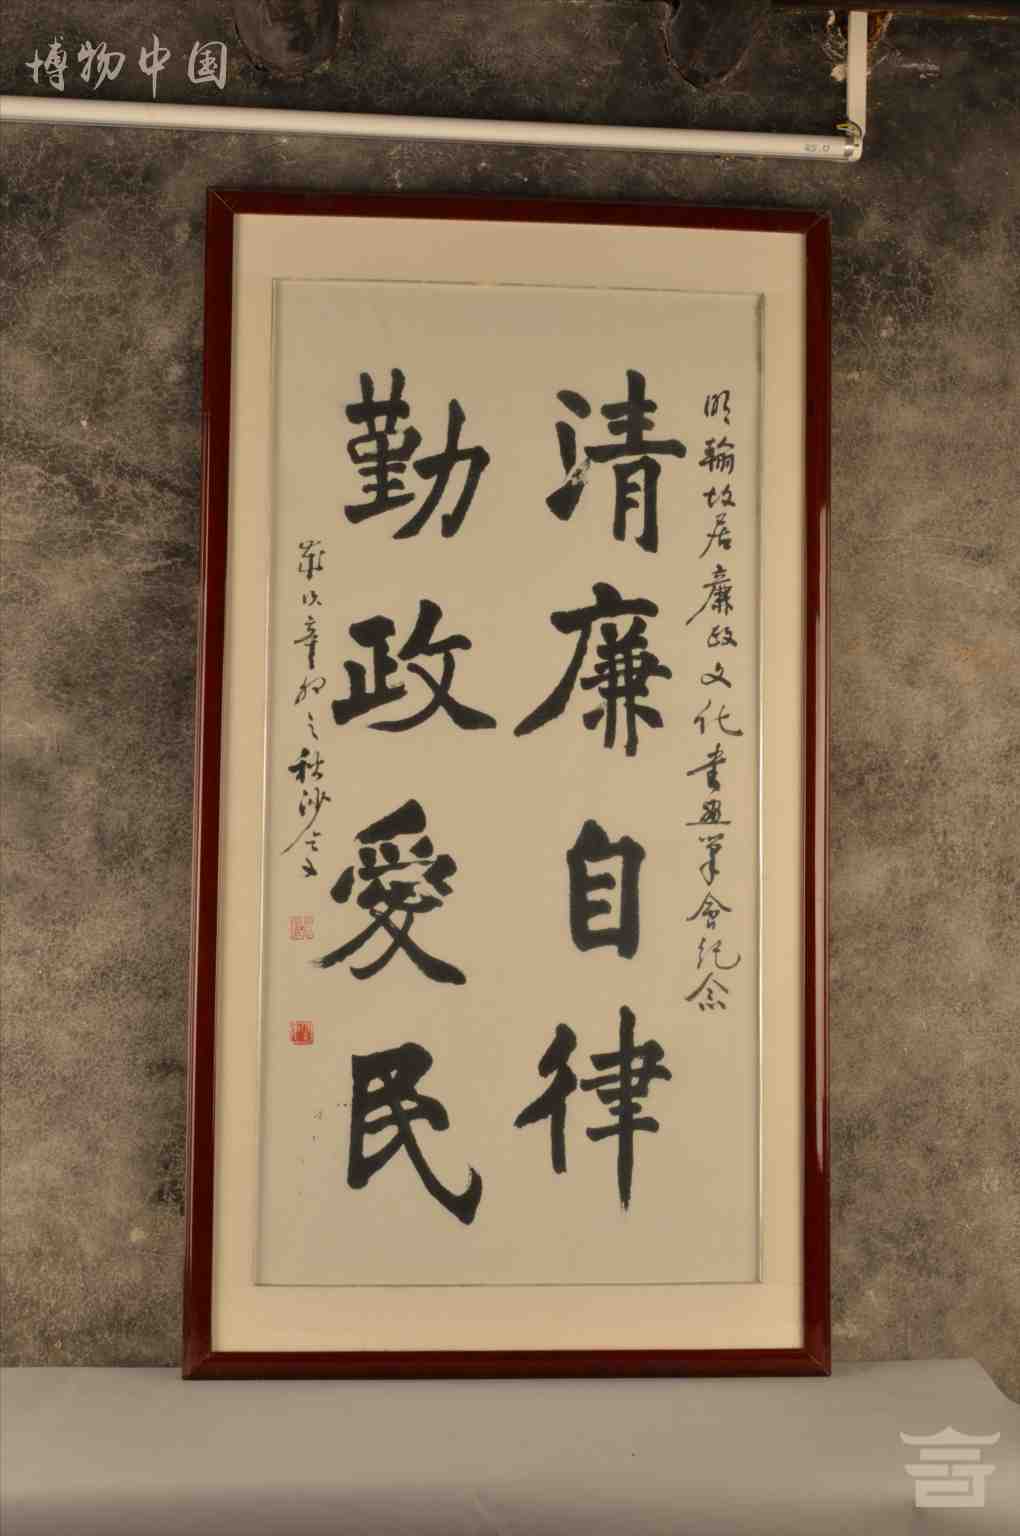 博物中国
明翰故居廉政文化书画笔会纪念
清廉自律
勤政愛民
歲次辛卯之秋沙